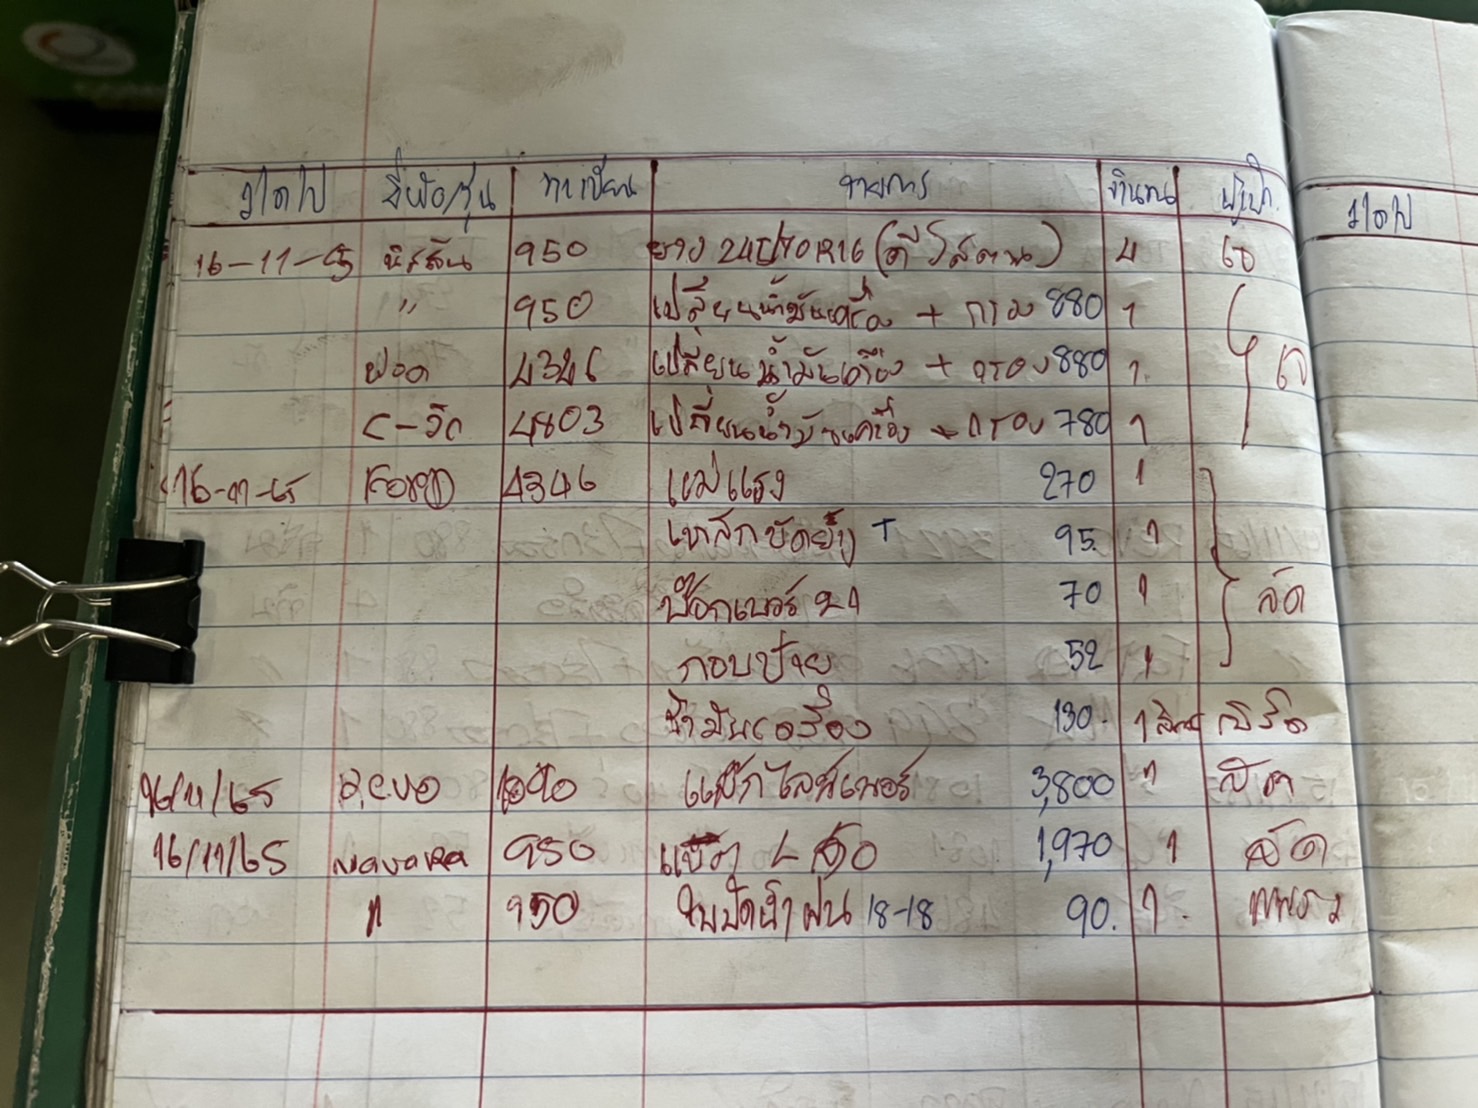 ว/ด/ป ยี่ห้อ/รุ่น ทะเบียน รายการ จำนวน ผู้เบิก ว/ด/ป
16-11-65 นิสสัน 950 ยาง 245/70R16 (ดีโสตน) 4
" 950 เปลี่ยนน้ำมันเครื่อง + กรอง 880 1
ฟอด 4346 เปลี่ยนน้ำมันเครื่อง + กรอง 880 1.
C-วิค 4803 เปลี่ยนน้ำมันเครื่อง + กรอง 780 1
16-11-65 FORD 4346 แม่แรง 270 1
เหล็กขัด + 95. 1
บ๊อกเบอร์ 21 70 1 ลัด
กอบป้าย 52 1
น้ำมันเครื่อง 130. 1 ลิตร
16/11/65 Revo แพ๊กไลน์เนอร์ 3,800 1
16/11/65 Navara 950 1,970 1 ลัด
" 950 ใบปัดน้ำฝน 18-18 90. 1.